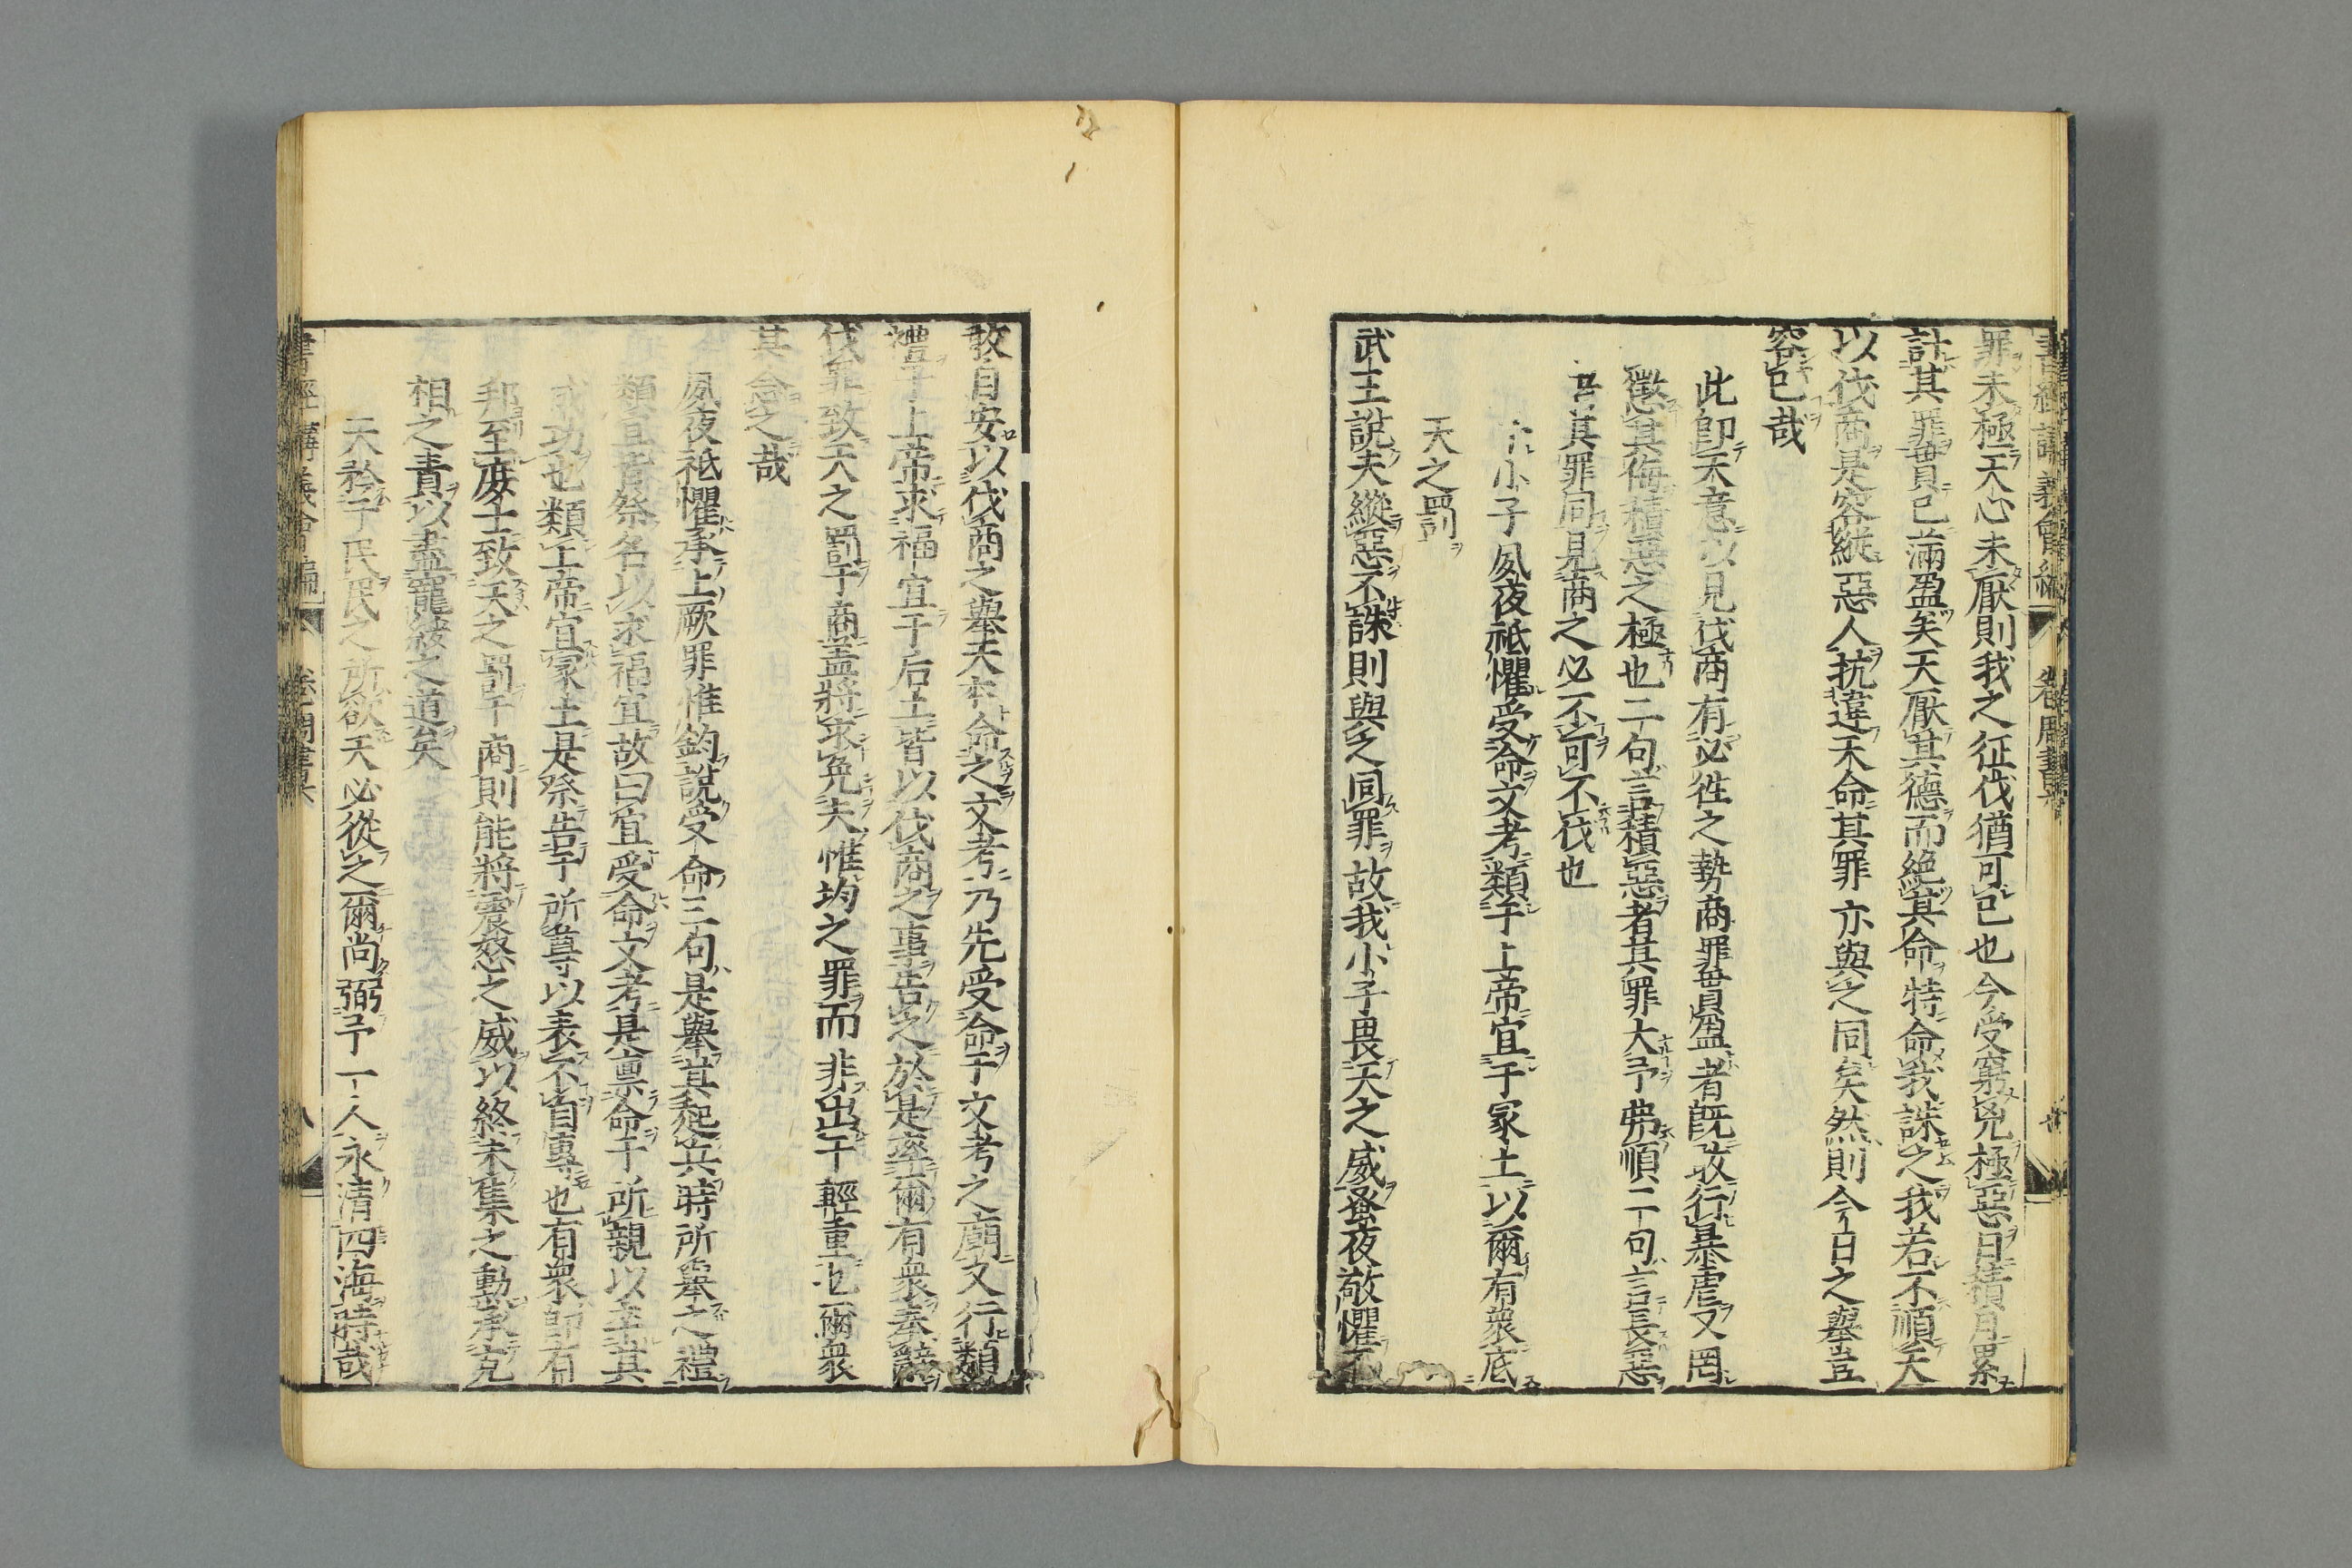 書經講義會編 卷 周書
罪未極天心未厭則我之征伐猶可已也今受窮兇極惡日積月累
計其罪貫已滿盈矣天厭其德而絕其命特命我誅之我若不順天
以伐商是容縱惡人抗違天命其罪亦與之同矣然則今日之舉豈
容已哉
此卽天意以見伐商有必徃之勢商罪貫盈者旣敢行暴虐又罔
懲其侮積惡之極也二句言積惡者其罪大予弗順二句言長惡
者其罪同見商之必不可不伐也
予小子夙夜祗懼受命文考類于上帝宜于冢土以爾有衆底
天之罰
武王說夫縱惡不誅則與之同罪故我小子畏天之威蚤夜敬懼不
敢自安以伐商之舉天本命之文考乃先受命于文考之廟又行類
禮于上帝求福宜于后土皆以伐商之事告之於是率爾有衆奉辭
伐罪致天之罰于商盖將求免夫惟均之罪而非出于輕重也爾衆
其念之哉
夙夜祗懼承上厥罪惟鈞說受命三句是舉其起兵時所舉之禮
類宜皆祭名以求福宜故曰宜受命文考是禀命于所親以幸其
求功也類上帝宜冢土是祭告于所尊以表不自專也有衆卽有
邦至庶士致天之罰于商則能將震怒之威以終未集之動承克
相之責以盡寵綏之道矣
天矜于民民之所欲天必從之爾尚弼予一人永清四海時哉
書經講義會編 卷 周書 八